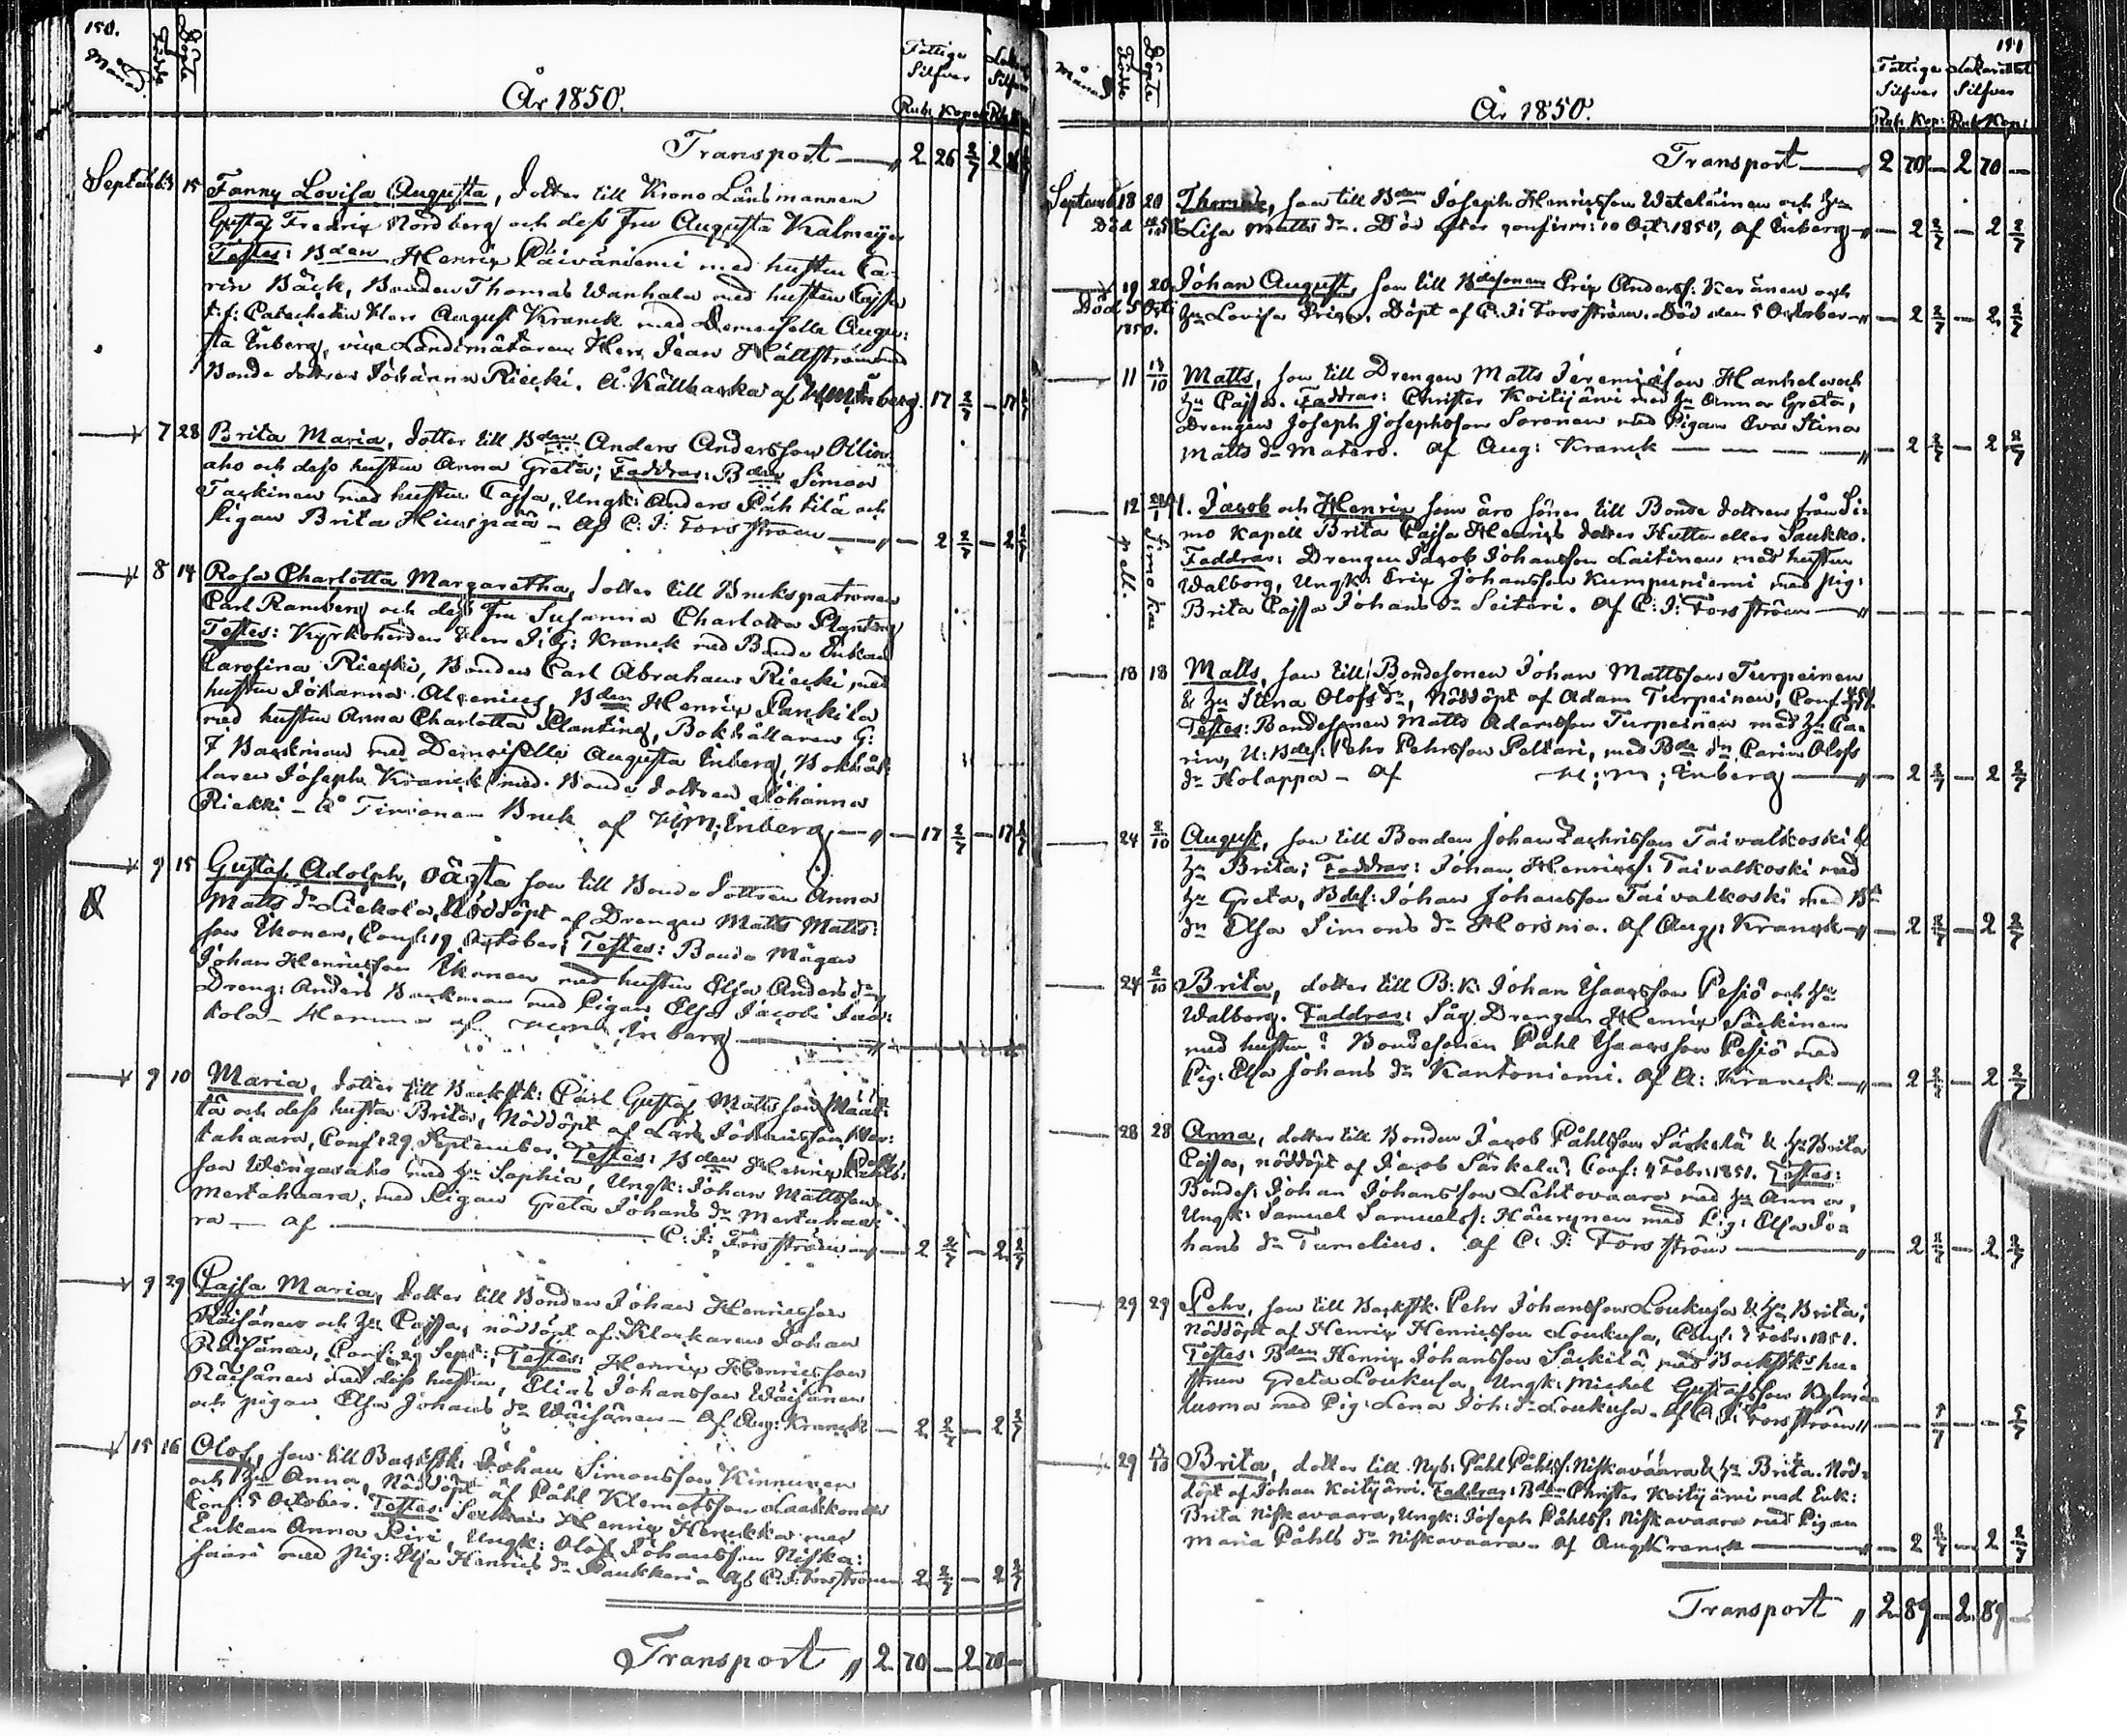 150.
Månad. Födde Döpte
År 1850.
Fattige Silfver
Rub: Kop:
Transport — " 2 26 2/7 2 26 2/7
September 3 15 Fanny Lovisa Augusta, dotter till Krono Länsmannen
Gustaf Fredrix Nordberg och dess Fru Augusta Kalmeyer
Testes: Bden Henrix Päiväniemi med hustru Ca-
rin Bäck, Bonden Thomas Wanhala med hustru Cajsa
t: f: Catecheten Herr August Kranck med Demoiselle Augu:
sta Enberg, vice Landtmätaren Herr Jean Hällström med
Bonde dottren Johanna Riecki. Å Källbacka af Enberg. 17 2/7 — 17 2/7
7 28 Brita Maria, dotter till Bden Anders Andersson Ollin-
aho och dess hustru Anna Greta; Faddrar: Bden Simon
Taskinen med hustru Cajsa, Ungk: Anders Pähtilä och
Pigan Brita Hiuspää — af C: J: Forsström — " — 2 2/7 — 2 2/7
8 14 Rosa Charlotta Margaretha, dotter till Brukspatronen
Carl Ramberg och dess Fru Susanna Charlotta Planting
Testes: Kyrkoherden Herr J: G: Kranck med Bonde Enkan
Carolina Riecki, Bonden Carl Abraham Riecki med
hustru Johanna Alcenius, Bden Henrix Pankila
med hustru Anna Charlotta Planting, Bokhållaren G:
J Backman med Demoiselle Augusta Enberg, Bokhål-
laren Joseph Kranck med Bonde dottren Johanna
Riekki — Å Timonen Bruk af W: M: Enberg — " — 17 2/7 — 17 2/7
9 15 Gustaf Adolph, oägta son till Bonde dottren Anna
Matts dr Liekola, Nöddöpt af Drengen Matts Matts-
son Ikonen, Conf: 19 October; Testes: Bonde Mågen
Johan Henricsson Ikonen med hustru Elsa Anders dr
Dreng: Anders Backman med Pigan Elsa Jacobs
kola — Hemma af W: M: Enberg — "
9 10 Maria, dotter till Backstk: Carl Gustaf Mattsson Määt-
tä och dess hustru Brita, Nöddöpt af Lars Johansson Mer-
tahaara, Conf: 29 September. Testes: Bden Henrix Påhls-
son Wengasaho med hu Sophia, Ungk: Johan Mattsson
Mertahaara, med Pigan Greta Johans dr Mertahaa-
ra — af — C: J: Forsström — 2 2/7 — 2 2/7
9 29 Cajsa Maria, dotter till Bonden Johan Henricsson
Räisänen och hu Cajsa, nöddöpt af Klockaren Johan
Räisänen, Conf: 29 Sept:; Testes: Henrix Henricsson
Räisänen med dess hustru, Elias Johansson Wäisänen
och pigan Elsa Johans dr Wäisänen — Af Aug: Kranck — 2 2/7 — 2 2/7
15 16 Olof, son till Backstk: Johan Simonsson Kinnunen
och hu Anna, Nöddöpt af Påhl Klemetsson Laakkonen
Conf: 5 October. Testes: Henrix Henrikka med
Enkan Anna Piri, Ungk: Olof Johansson Niska-
saari med Pig: Elsa Henrics dr Paukkeri — Af C: J: Forsström 2 2/7 — 2 2/7
Transport " 2 70 — 2 70 —
151
Månad Födde Döpte
År 1850.
Fattige Silfver Lazarettet Silfver
Rub: Kop: Rub: Kop:
Transport — " 2 70 — 2 70 —
September 18 20 Thomas, son till Bden Joseph Henricsson Wäteläinen och hu
Död 10/10 Lisa Matts dr. Död efter confirm: 10 Oct: 1850, af Enberg — " — 2 2/7 — 2 2/7
19 20 Johan August, son till Bdesonen Erix Anderss: Keränen och
Död 5 Oct: 1850. hu Lovisa Erix. Döpt af C: J: Forsström. Död den 5 October — " — 2 2/7 — 2 2/7
11 13/10 Matts, son till Drengen Matts Jeremiæson Hanhela och
hu Cajsa. Faddrar: Christer Koitijärvi med hu Anna Greta,
Drengen Joseph Josephsson Soronen med Pigan Eva Stina
Matts dr Matero. af Aug: Kranck — " — 2 2/7 — 2 2/7
12 1. Jacob och Henrix som äro söner till Bonde dottren från Si-
mo Kapell Brita Cajsa Henrics dotter Huttu eller Saukko.
Faddrar: Drengen Jacob Johansson Laitinen med hustru
Walborg, Ungk: Erix Johansson Kumpuniemi med pig:
Brita Cajsa Johans dr Seitari. af C: J: Forsström — "
Simo kapell.
18 18 Matts, son till Bondesonen Johan Mattsson Turpeinen
& hu Stina Olofs dr, Nöddöpt af Adam Turpeinen, Conf:
Testes: Bondesonen Matts Adamsson Turpeinen med hu Ca-
rin, U: Bdes: Pehr Pehrsson Peltari, med Bde dn Carin Olofs
dr Holappa — af W: M: Enberg — " — 2 2/7 — 2 2/7
24 2/10 August, son till Bonden Johan Zachrisson Taivalkoski &
hu Brita; Faddrar: Johan Henricss: Taivalkoski med
hu Greta, Bdes: Johan Johansson Taivalkoski med Bde
dn Elsa Simons dr Hoisnia. af Aug: Kranck — " — 2 2/7 — 2 2/7
24 2/10 Brita, dotter till B: k: Johan Isacsson Pesiö och hu
Walborg. Faddrar: Såg Drengen Henrix Säckinen
med hustru? Bondesonen Påhl Isacsson Pesiö med
Pig: Elsa Johans dr Kantoniemi. af A: Kranck — " — 2 2/7 — 2 2/7
28 28 Anna, dotter till Bonden Jacob Påhlsson Särkelä & hu Brita
Cajsa, nöddöpt af Jacob Särkelä; Conf: 4 Febr: 1851. Testes:
Bondes: Johan Johansson Lehtovaara med hu Anna,
Ungk: Samuel Samuelss: Häyrynen med Pig: Elsa Jo-
hans dr Tumelius. af C: J: Forsström — " — 2 2/7 — 2 2/7
29 29 Pehr, son till Backstk: Pehr Johansson Loukusa & hu Brita;
Nöddöpt af Henrix Henricsson Loukusa, Conf: 7 Febr: 1851.
Testes: Bden Henrix Johansson Säckilä med Backstks hu-
strun Greta Loukusa, Ungk: Michel Gustafsson Kylmä-
luoma med Pig: Lena Joh: dr Loukusa. af C: J: Forsström " — — 5/7 — — 5/7
29 13/10 Brita, dotter till Nyb: Påhl Påhlss: Niskavaara & hu Brita. Nöd-
döpt af Johan Koitijärvi. Faddrar: Bden Christer Koitijärvi med Enk:
Brita Niskavaara, Ungk: Joseph Påhlss: Niskavaara med Pigan
Maria Påhls dr Niskavaara. Af Aug Kranck — " — 2 2/7 — 2 2/7
Transport " 2 89 — 2 89 —